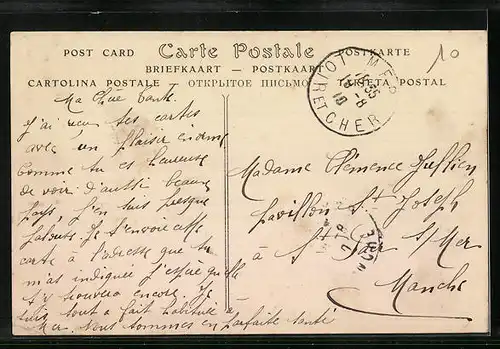 POST CARD Carte Postale POSTKARTE
BRIEFKAART — POSTKAART
CARTOLINA POSTALE — ОТКРЫТОЕ ПИСЬМО TARJETA POSTAL
10
MER
LOIR ET CHER
Ma Chère tante
J'ai reçu tes cartes
avec un plaisir énorme
comme tu es heureuse
de voir d'aussi beaux
pays, j'en suis presque
jalouse. Je t'envoie cette
carte à l'adresse que tu
m'as indiquée j'espère qu'elle
t'y trouvera encore. Je
suis tout a fait habituée à
Mer. Nous sommes en parfaite santé
Madame Clémence
Pavillon St Joseph
à St s/Mer
Manche
MANCHE